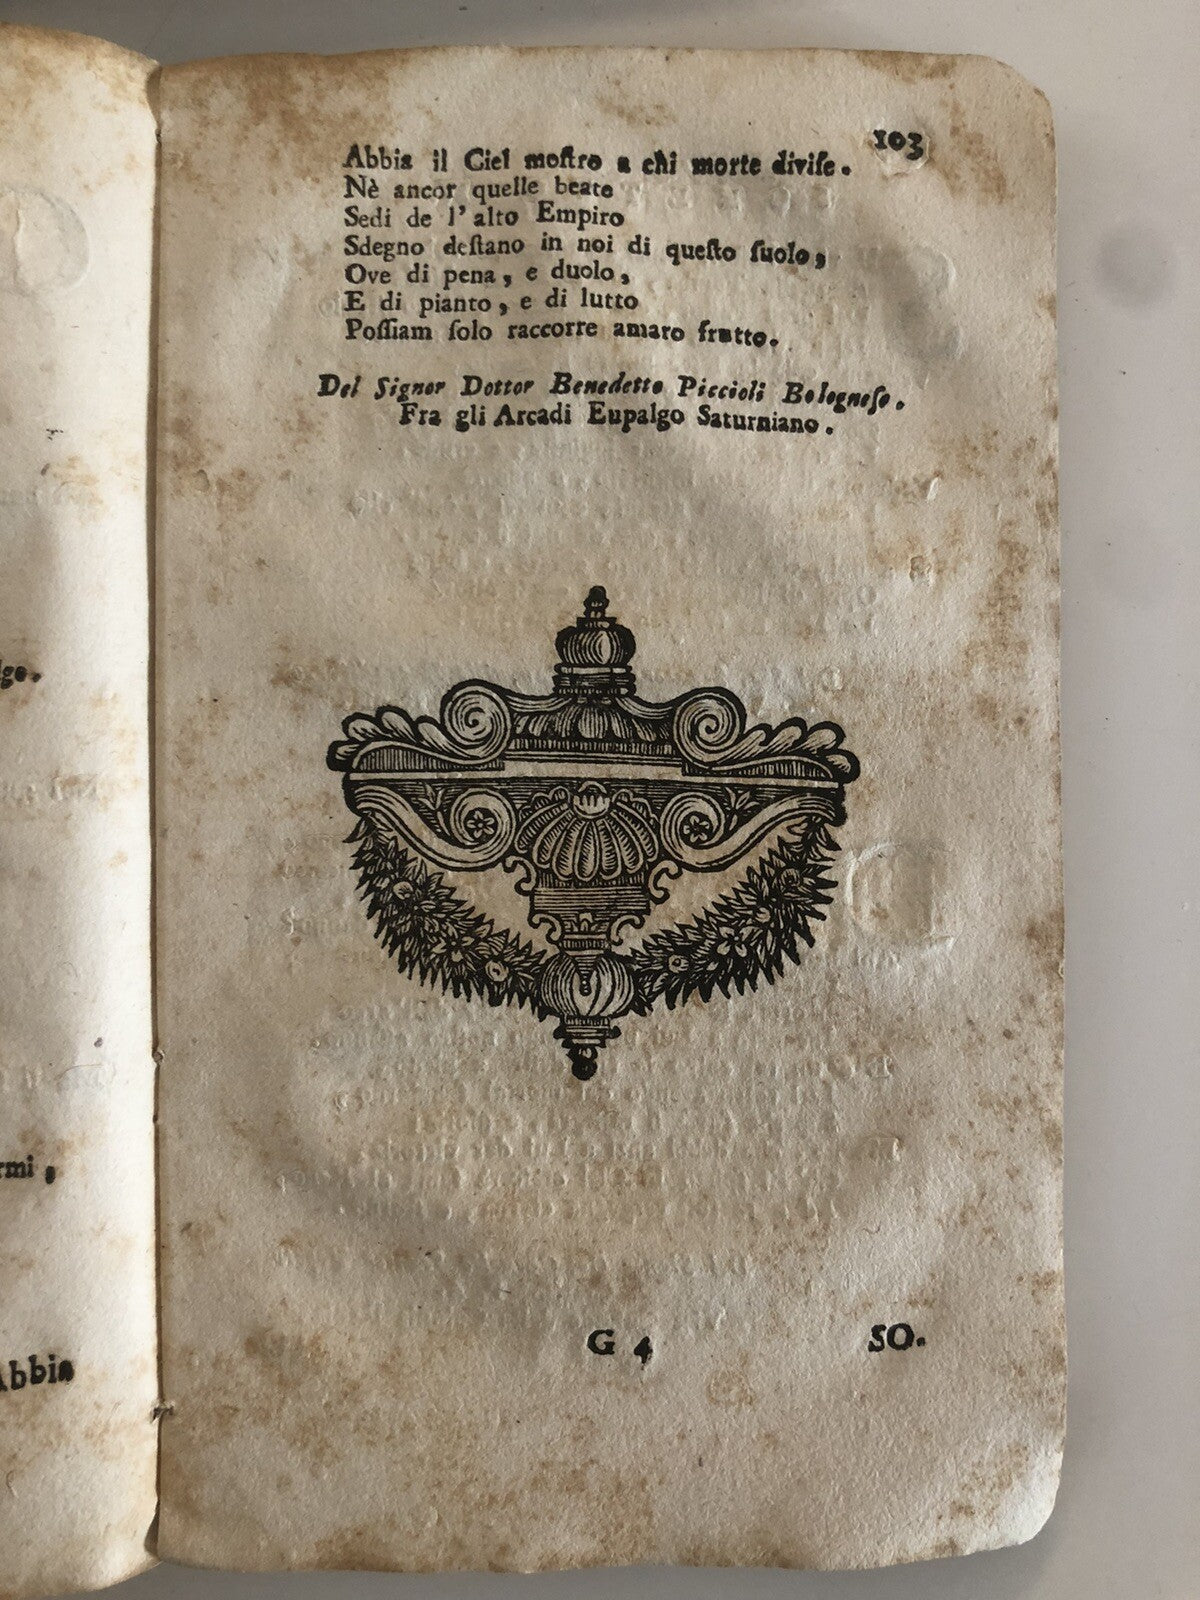 103
Abbia il Ciel moſtro a chi morte diviſe.
Nè ancor quelle beate
Sedi de l' alto Empiro
Sdegno deſtano in noi di queſto ſuolo,
Ove di pena, e duolo,
E di pianto, e di lutto
Poſſiam ſolo raccorre amaro frutto.
Del Signor Dottor Benedetto Piccioli Bologneſe.
Fra gli Arcadi Eupalgo Saturniano.
G 4 SO.
rmi,
Abbia